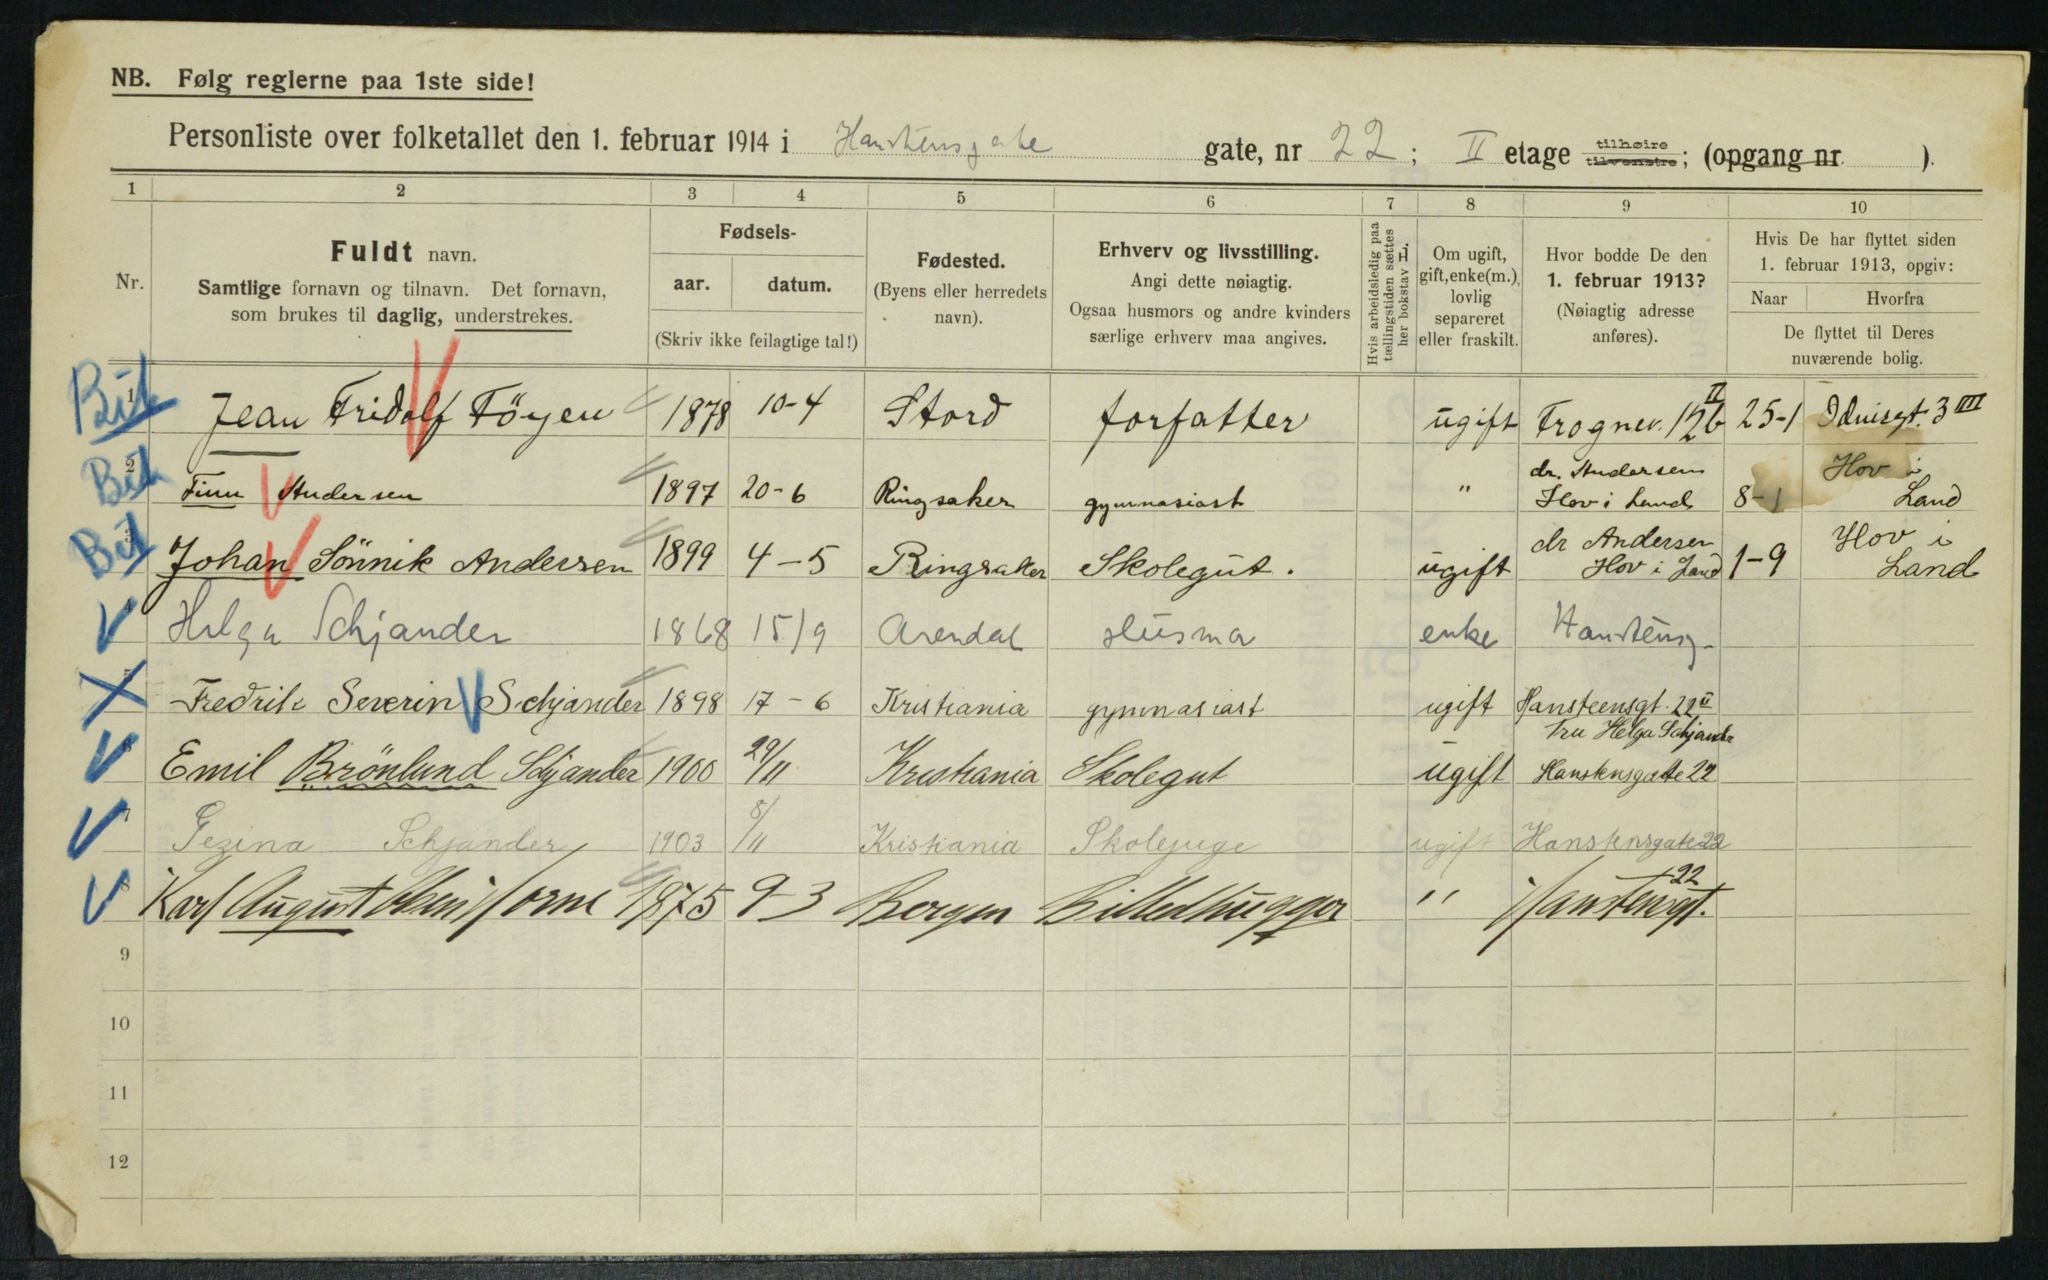 NB. Følg reglerne paa 1ste side!
Personliste over folketallet den 1. februar 1914 i Hanstensgate gate, nr 22; II etage tilhøire tilvenstre; (opgang nr ).
1 2 3 4 5 6 7 8 9 10
Nr.
Fuldt navn.
Samtlige fornavn og tilnavn. Det fornavn,
som brukes til daglig, understrekes.
Fødsels-
aar. datum.
(Skriv ikke feilagtige tal!)
Fødested.
(Byens eller herredets
navn).
Erhverv og livsstilling.
Angi dette nøiagtig.
Ogsaa husmors og andre kvinders
særlige erhverv maa angives.
Hvis arbeidsledig paa
tællingstiden sættes
her bokstav L.
Om ugift,
gift, enke(m.),
lovlig
separeret
eller fraskilt.
Hvor bodde De den
1. februar 1913?
(Nøiagtig adresse
anføres).
Hvis De har flyttet siden
1. februar 1913, opgiv:
Naar Hvorfra
De flyttet til Deres
nuværende bolig.
1 Jean Fridolf Föyen 1878 10-4 Stord forfatter ugift Frognerv. 12b II 25-1 3 IIII
2 Finn Andersen 1897 20-6 Ringsaker gymnasiast " dr. Andersen Hov i Land 8-1 Hov i Land
3 Johan Sönnik Andersen 1899 4-5 Ringsaker Skolegut. ugift dr Andersen Hov i Land 1-9 Hov i Land
4 Helga Schjander 1868 15/9 Arendal Husmor enke Hanstensg.
5 Fredrik Severin Schjander 1898 17-6 Kristiania gymnasiast ugift Hansteensgt. 22 II
Fru Helga Schjander
6 Emil Brönlund Schjander 1900 29/11 Kristiania Skolegut ugift Hanstensgatte 22
7 Gezina Schjander 1903 8/11 Kristiania Skolepige ugift Hanstensgate 22
8 Karl August 1875 9-3 Bergen Billedhugger " Hanstensgt. 22
9
10
11
12